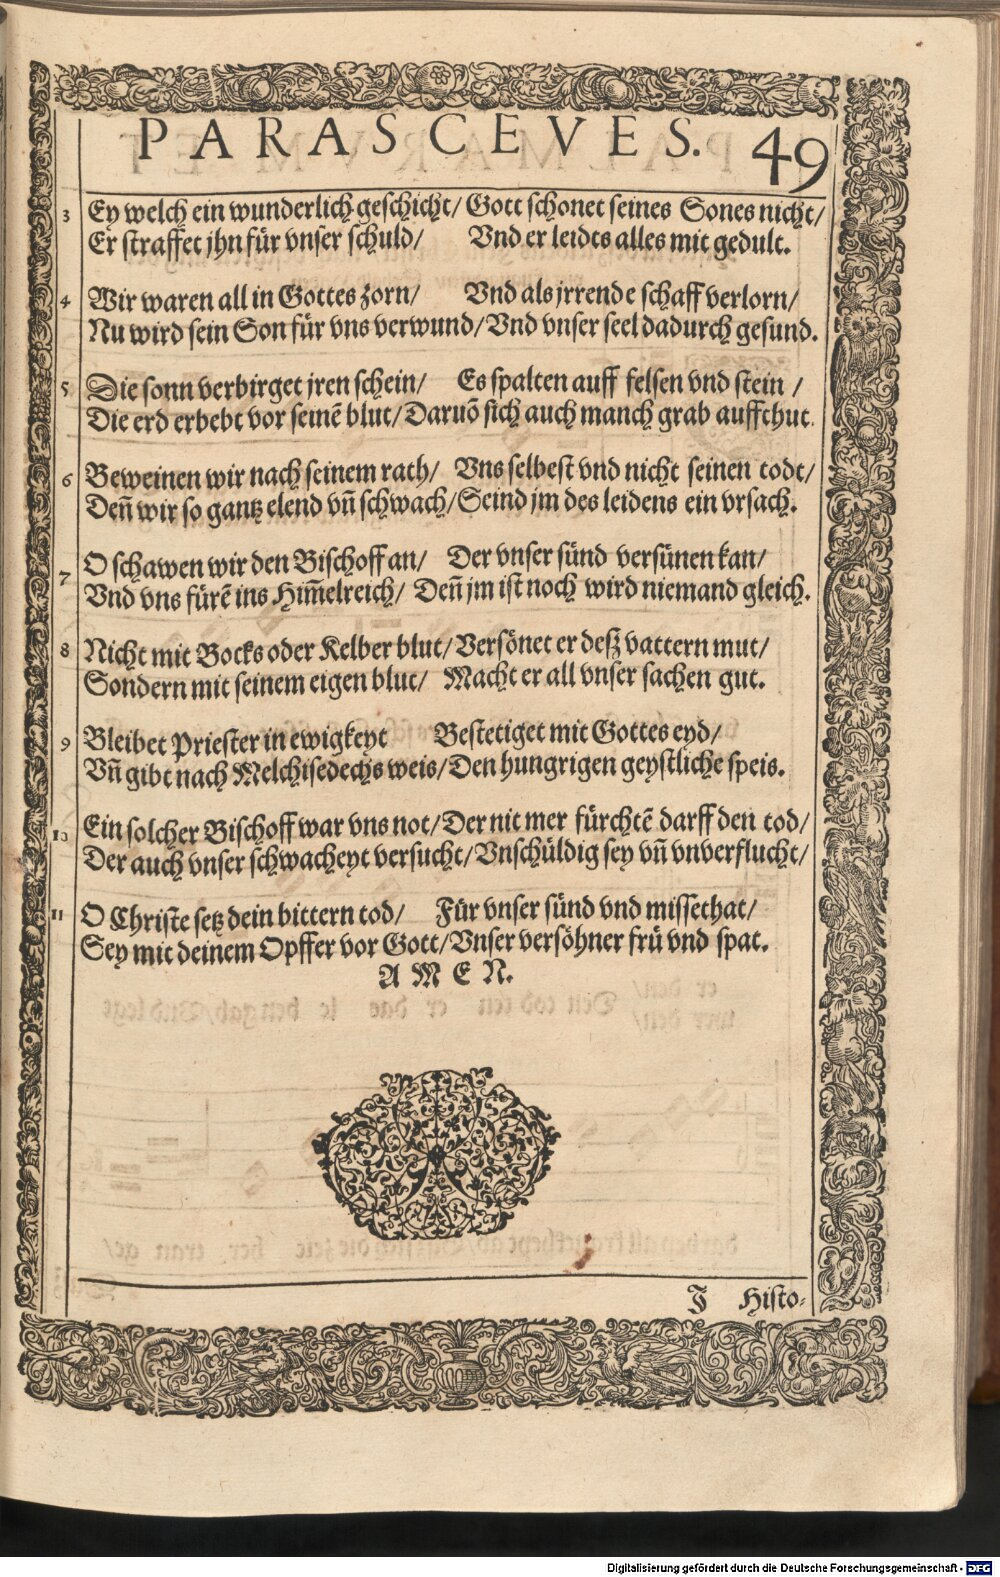 PARASCEVES. 49
3 Ey welch ein wunderlich geschicht/ Gott schonet seines Sones nicht/
Er straffet jhn für vnser schuld/ Vnd er leidts alles mit gedult.
4 Wir waren all in Gottes zorn/ Vnd als jrrende schaff verlorn/
Nu wird sein Son für vns verwund/ Vnd vnser seel dadurch gesund.
5 Die sonn verbirget jren schein/ Es spalten auff felsen vnd stein /
Die erd erbebt vor seinē blut/ Daruō sich auch manch grab auffthut.
6 Beweinen wir nach seinem rath/ Vns selbest vnd nicht seinen todt/
Den̄ wir so gantz elend vn̄ schwach/ Seind jm des leidens ein vrsach.
7 O schawen wir den Bischoff an/ Der vnser sünd versünen kan/
Vnd vns fürē ins Him̄elreich/ Den̄ jm ist noch wird niemand gleich.
8 Nicht mit Bocks oder Kelber blut/ Versönet er deß vattern mut/
Sondern mit seinem eigen blut/ Macht er all vnser sachen gut.
9 Bleibet Priester in ewigkeyt Bestetiget mit Gottes eyd/
Vn̄ gibt nach Melchisedechs weis/ Den hungrigen geystliche speis.
10 Ein solcher Bischoff war vns not/ Der nit mer fürchtē darff den tod/
Der auch vnser schwacheyt versucht/ Vnschüldig sey vn̄ vnverflucht/
11 O Christe setz dein bittern tod/ Für vnser sünd vnd missethat/
Sey mit deinem Opffer vor Gott/ Vnser versöhner frü vnd spat.
A M E N.
J Histo-
Digitalisierung gefördert durch die Deutsche Forschungsgemeinschaft - DFG